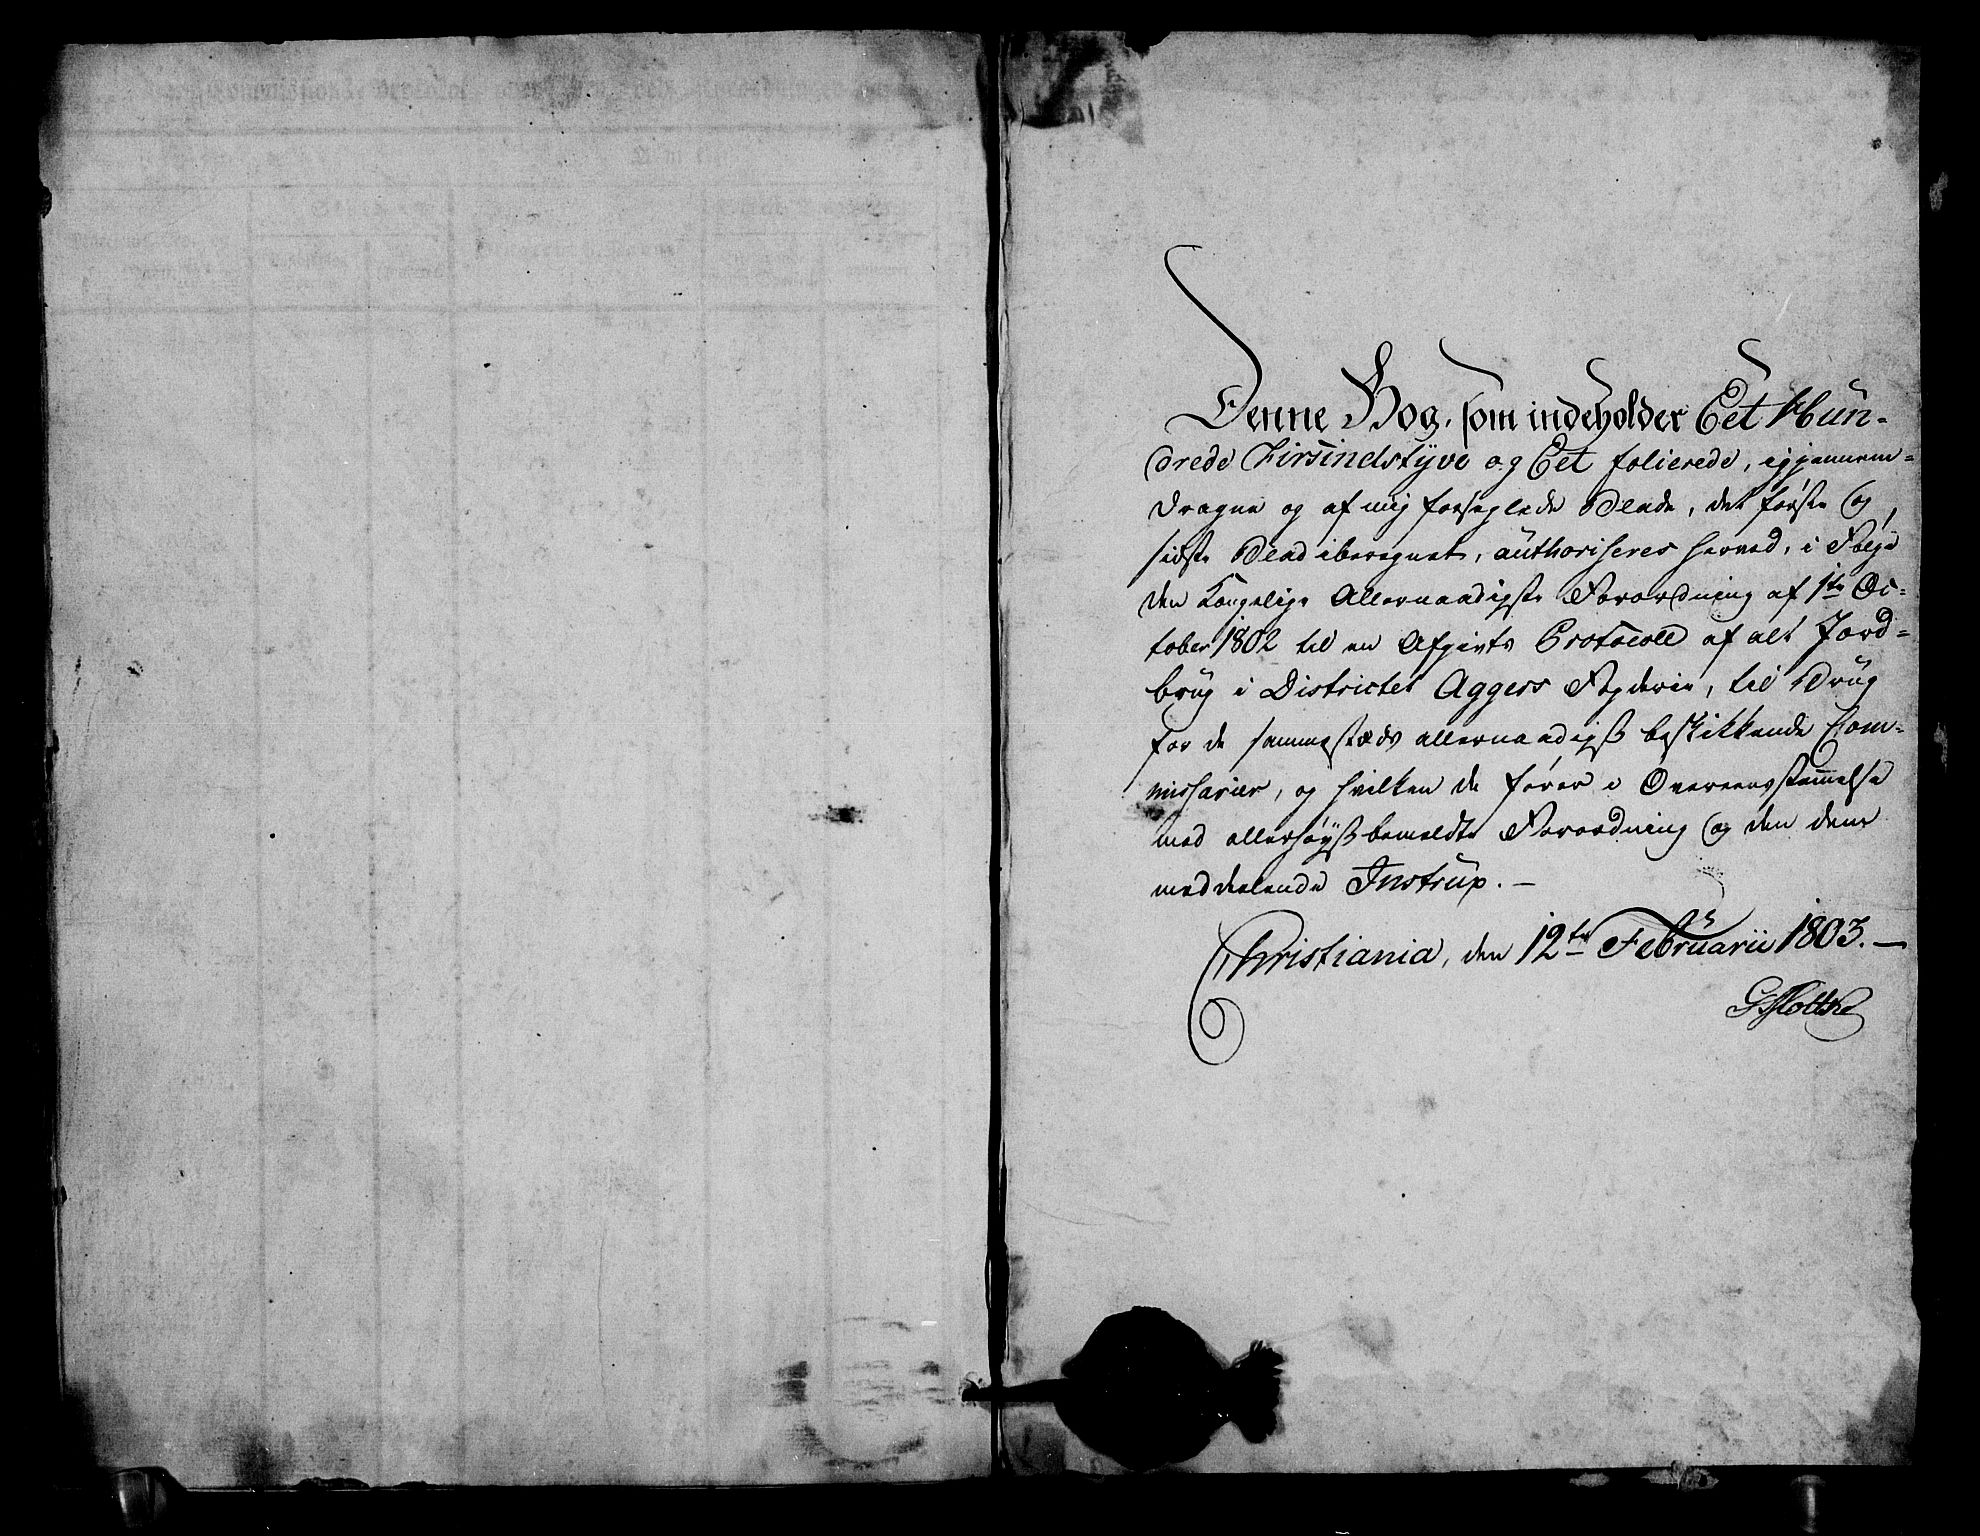 Denne Bog, som indeholder Eet Hun-
drede Firsindstyve og Eet folierede, igjennem-
dragne og af mig forseglede Blade, det første og
sidste Blad iberegnet, authoriseres herved, i Følge
den Kongelige Allernaadigste Forordning af 1te Oc-
tober 1802 til en Afgivts Protocoll af alt Jord-
brug i Districtet Aggers Fogderie, til Brug
for de sammestæds allernaadigst beskikkende Com-
missarier, og hvilken de fører i Overeensstemmelse
med allerhøyst bemeldte Forordning og den dem
meddeelende Instrux. —
Christiania, den 12te Februarii 1803. —
G Moltke